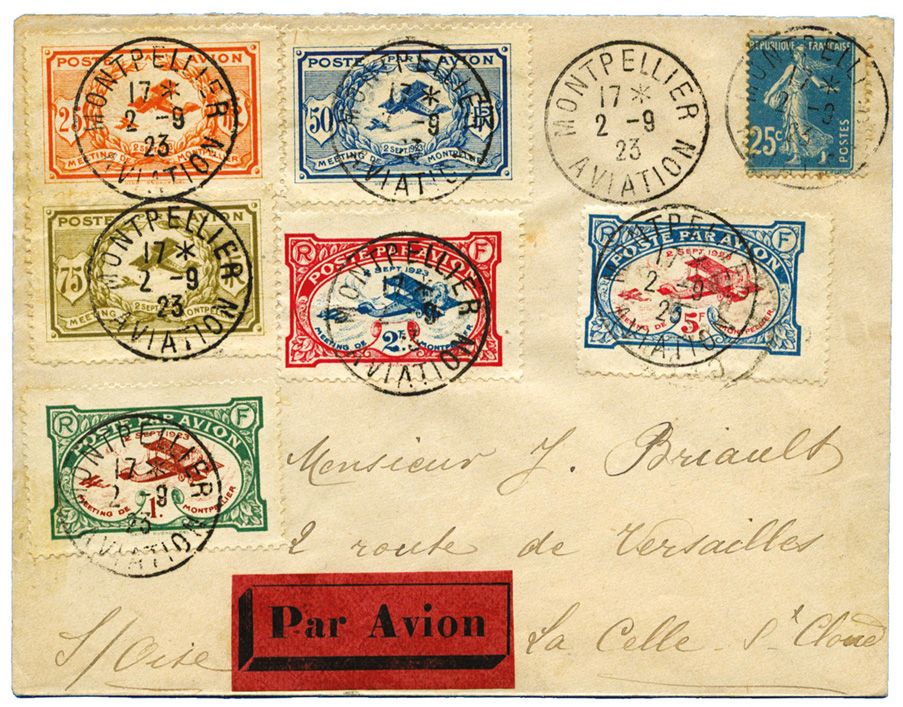 POSTE PAR AVION
25
MEETING DE MONTPELLIER
2 SEPT. 1923
MONTPELLIER
17 *
2 - 9
23
AVIATION
POSTE PAR AVION
50
MEETING DE MONTPELLIER
2 SEPT. 1923
MONTPELLIER
17 *
9
AVIATION
MONTPELLIER
17 *
2 - 9
23
AVIATION
REPUBLIQUE FRANÇAISE
25c
POSTES
MONTPELLIER
POSTE PAR AVION
75
MEETING DE MONTPELLIER
2 SEPT
MONTPELLIER
17 *
2 - 9
23
AVIATION
R F
POSTE PAR AVION
2 SEPT 1923
MEETING DE MONTPELLIER
2F
MONTPELLIER
17
9
AVIATION
R F
POSTE PAR AVION
2 SEPT 1923
MEETING DE MONTPELLIER
5F
MONTPELLIER
17
2 - 9
23
AVIATION
R F
POSTE PAR AVION
2 SEPT 1923
MEETING DE MONTPELLIER
1F
MONTPELLIER
17 *
2 - 9
23
AVIATION
Monsieur J. Briault
2 route de Versailles
La Celle - St Cloud
S/Oise
Par Avion